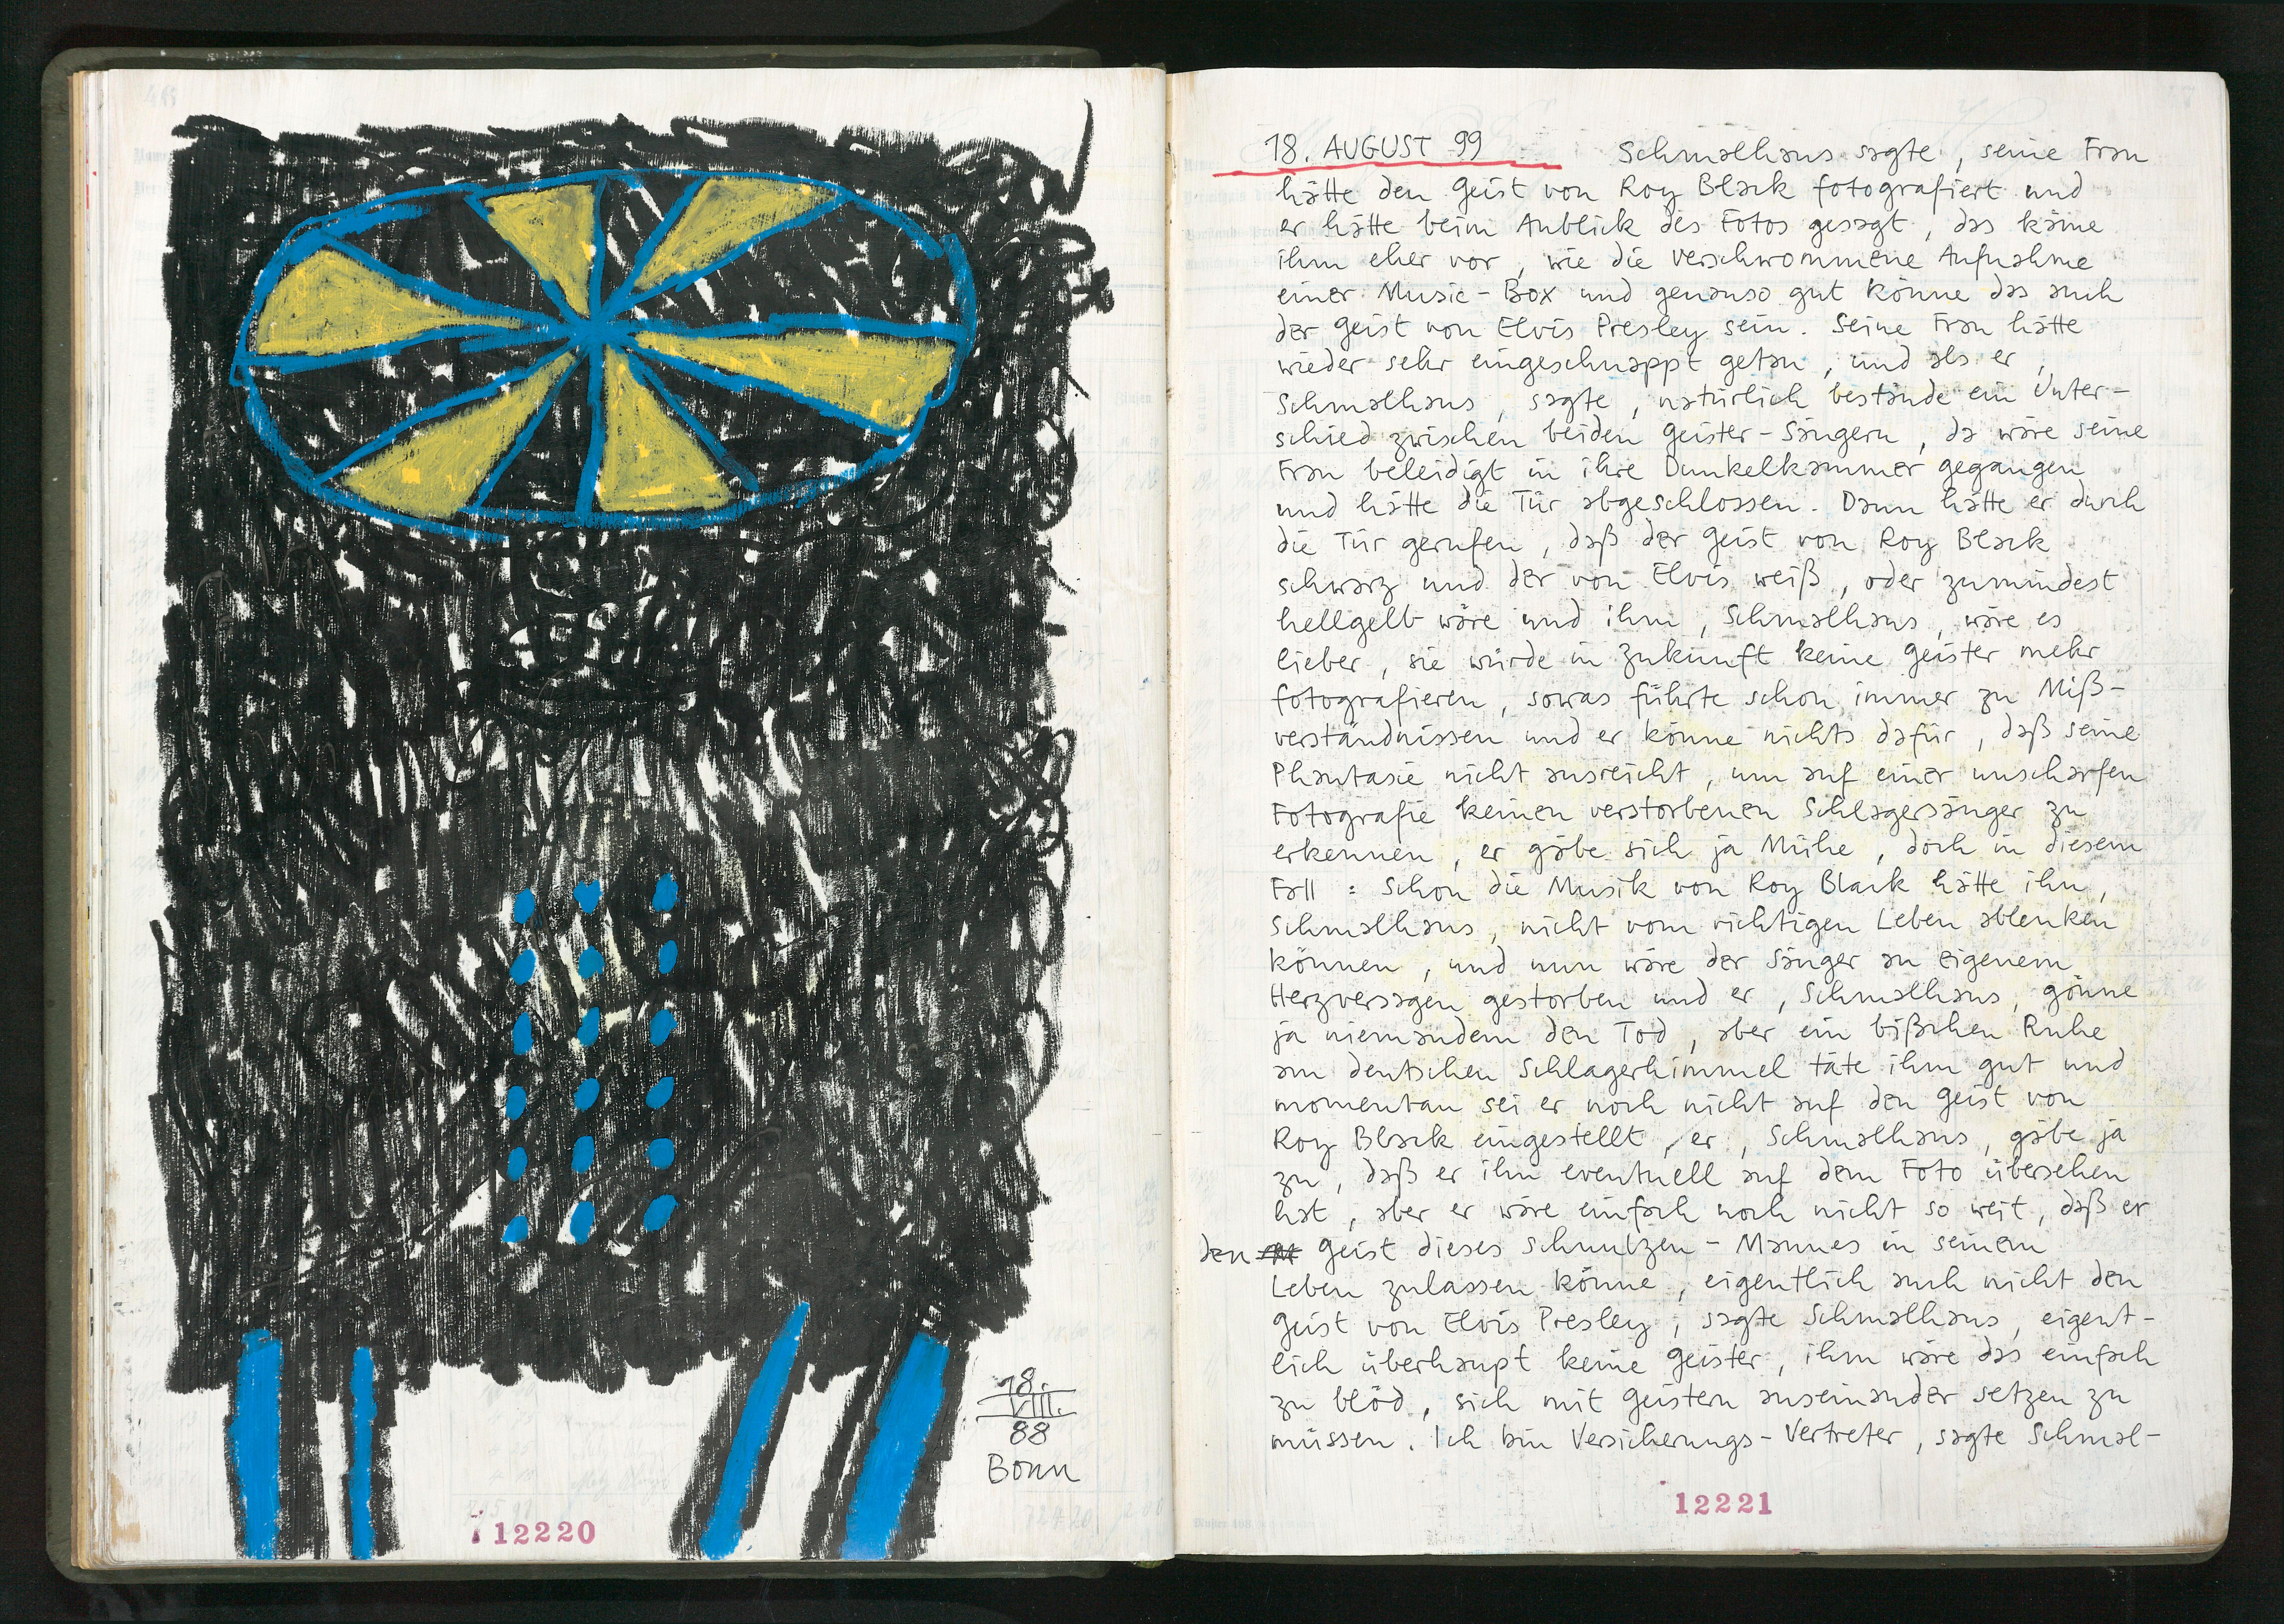 18.
VIII.
88
Bonn
12220
18. AUGUST 99 Schmalhaus sagte, seine Frau
hätte den Geist von Roy Black fotografiert und
er hätte beim Anblick des Fotos gesagt, das käme
ihm eher vor, wie die verschwommene Aufnahme
einer Music-Box und genauso gut könne das auch
der Geist von Elvis Presley sein. Seine Frau hätte
wieder sehr eingeschnappt getan, und als er,
Schmalhaus, sagte, natürlich bestände ein Unter-
schied zwischen beiden Geister-Sängern, da wäre seine
Frau beleidigt in ihre Dunkelkammer gegangen
und hätte die Tür abgeschlossen. Dann hätte er durch
die Tür gerufen, daß der Geist von Roy Black
schwarz und der von Elvis weiß, oder zumindest
hellgelb wäre und ihm, Schmalhaus, wäre es
lieber, sie würde in Zukunft keine Geister mehr
fotografieren, sowas führte schon immer zu Miß-
verständnissen und er könne nichts dafür, daß seine
Phantasie nicht ausreicht, um auf einer unscharfen
Fotografie keinen verstorbenen Schlagersänger zu
erkennen, er gäbe sich ja Mühe, doch in diesem
Fall: Schon die Musik von Roy Black hätte ihn,
Schmalhaus, nicht vom richtigen Leben ablenken
können, und nun wäre der Sänger an eigenem
Herzversagen gestorben und er, Schmalhaus, gönne
ja niemandem den Tod, aber ein bißchen Ruhe
am deutschen Schlagerhimmel täte ihm gut und
momentan sei er noch nicht auf den Geist von
Roy Black eingestellt, er, Schmalhaus, gäbe ja
zu, daß er ihn eventuell auf dem Foto übersehen
hat, aber er wäre einfach noch nicht so weit, daß er
den Geist dieses Schnulzen-Mannes in seinem
Leben zulassen könne, eigentlich auch nicht den
Geist von Elvis Presley, sagte Schmalhaus, eigent-
lich überhaupt keine Geister, ihm wäre das einfach
zu blöd, sich mit Geistern auseinander setzen zu
müssen. Ich bin Versicherungs-Vertreter, sagte Schmal-
12221